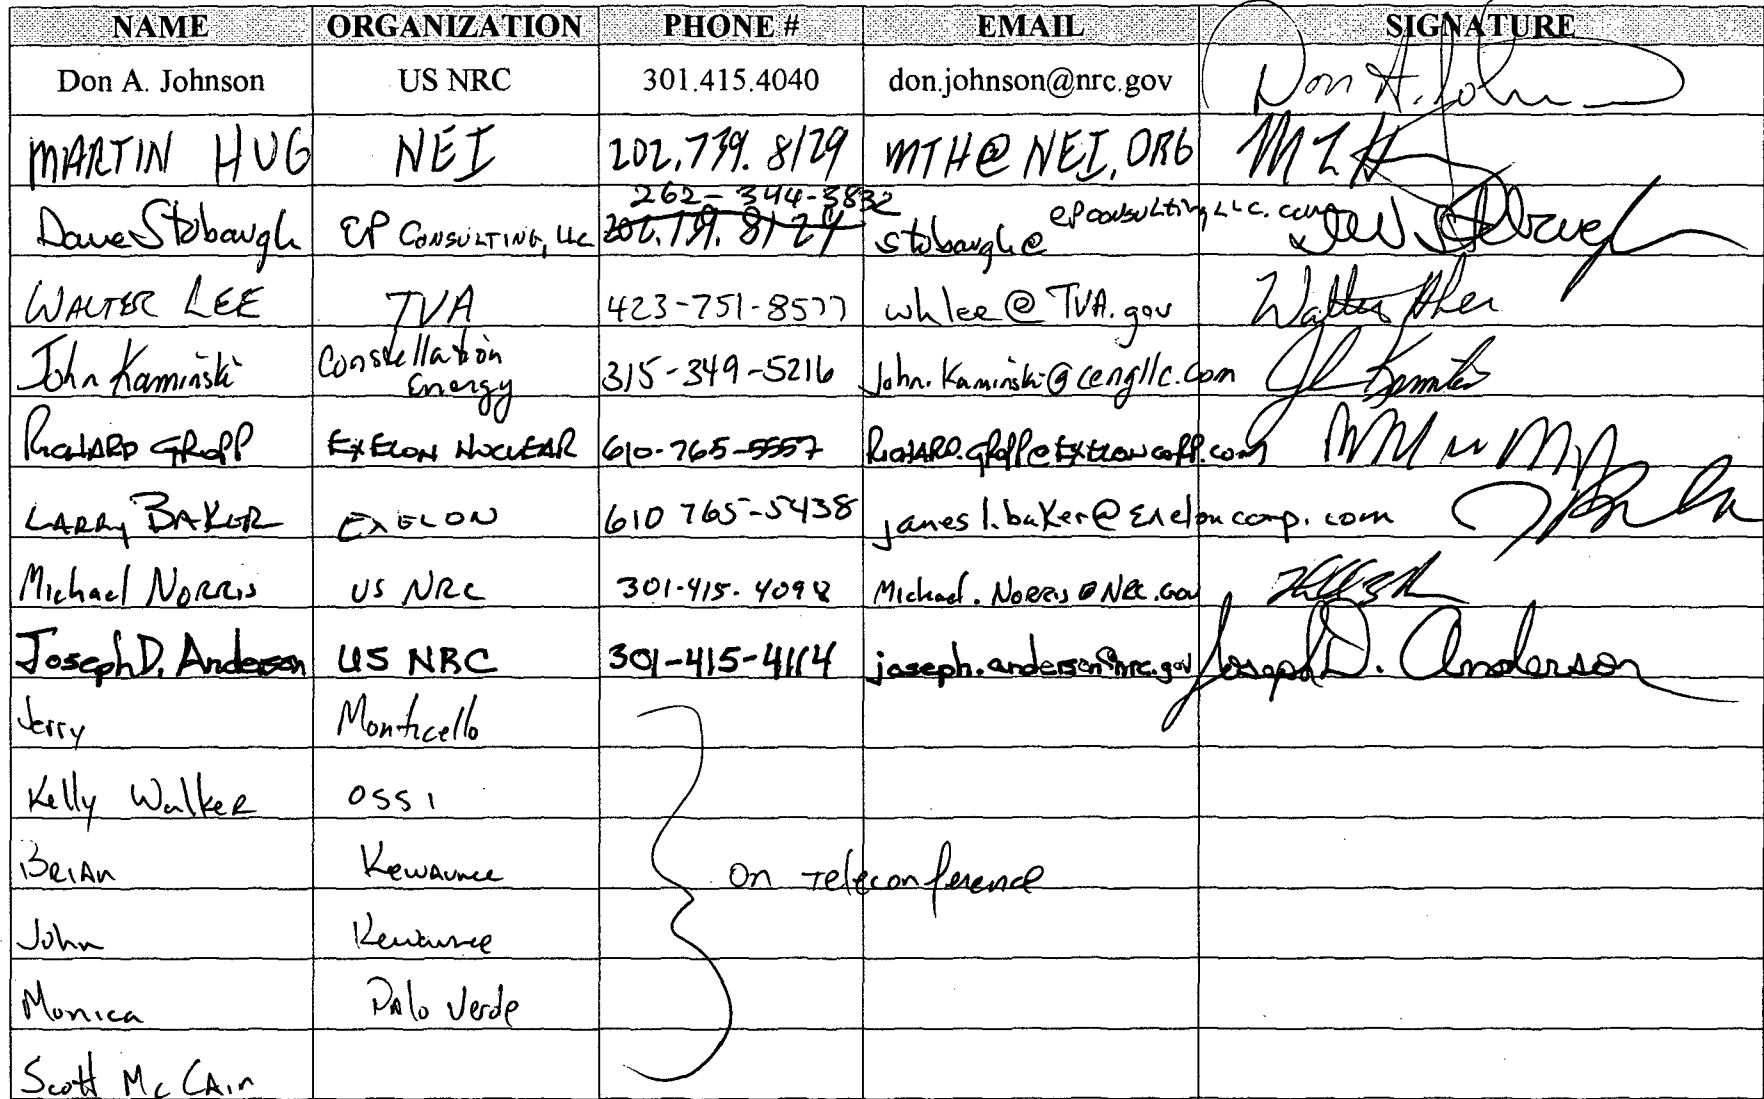 NAME ORGANIZATION PHONE # EMAIL SIGNATURE
Don A. Johnson US NRC 301.415.4040 don.johnson@nrc.gov Don A. John
MARTIN HUG NEI 202.739.8129 MTH@NEI.ORG
262-344-3832
Dave Stobaugh EP CONSULTING, LLC 202.739.8129 stobaugh@epconsulting,LLC.com
WALTER LEE TVA 423-751-8577 whlee@TVA.gov Walter Lee
John Kaminski Constellation Energy 315-349-5216 John.Kaminski@cengllc.com
RICHARD GROPP EXELON NUCLEAR 610-765-5557 RICHARD.GROPP@EXELONCORP.com
LARRY BAKER EXELON 610 765-5438 james l.baker@Exeloncorp.com
Michael NORRIS US NRC 301-415-4098 Michael.NORRIS@NRC.GOV
Joseph D. Anderson US NRC 301-415-4114 joseph.anderson@nrc.gov Joseph D. Anderson
Jerry Monticello
Kelly Walker OSSI
BRIAN Kewaunee on Teleconference
John Kewaunee
Monica Palo Verde
Scott McCain